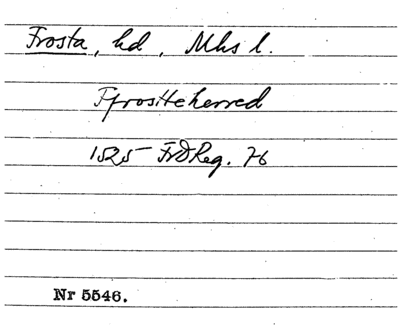 Frosta, hd, Mhs l.
Ffrositeherred
1525 FrDReg. 76
Nr 5546.